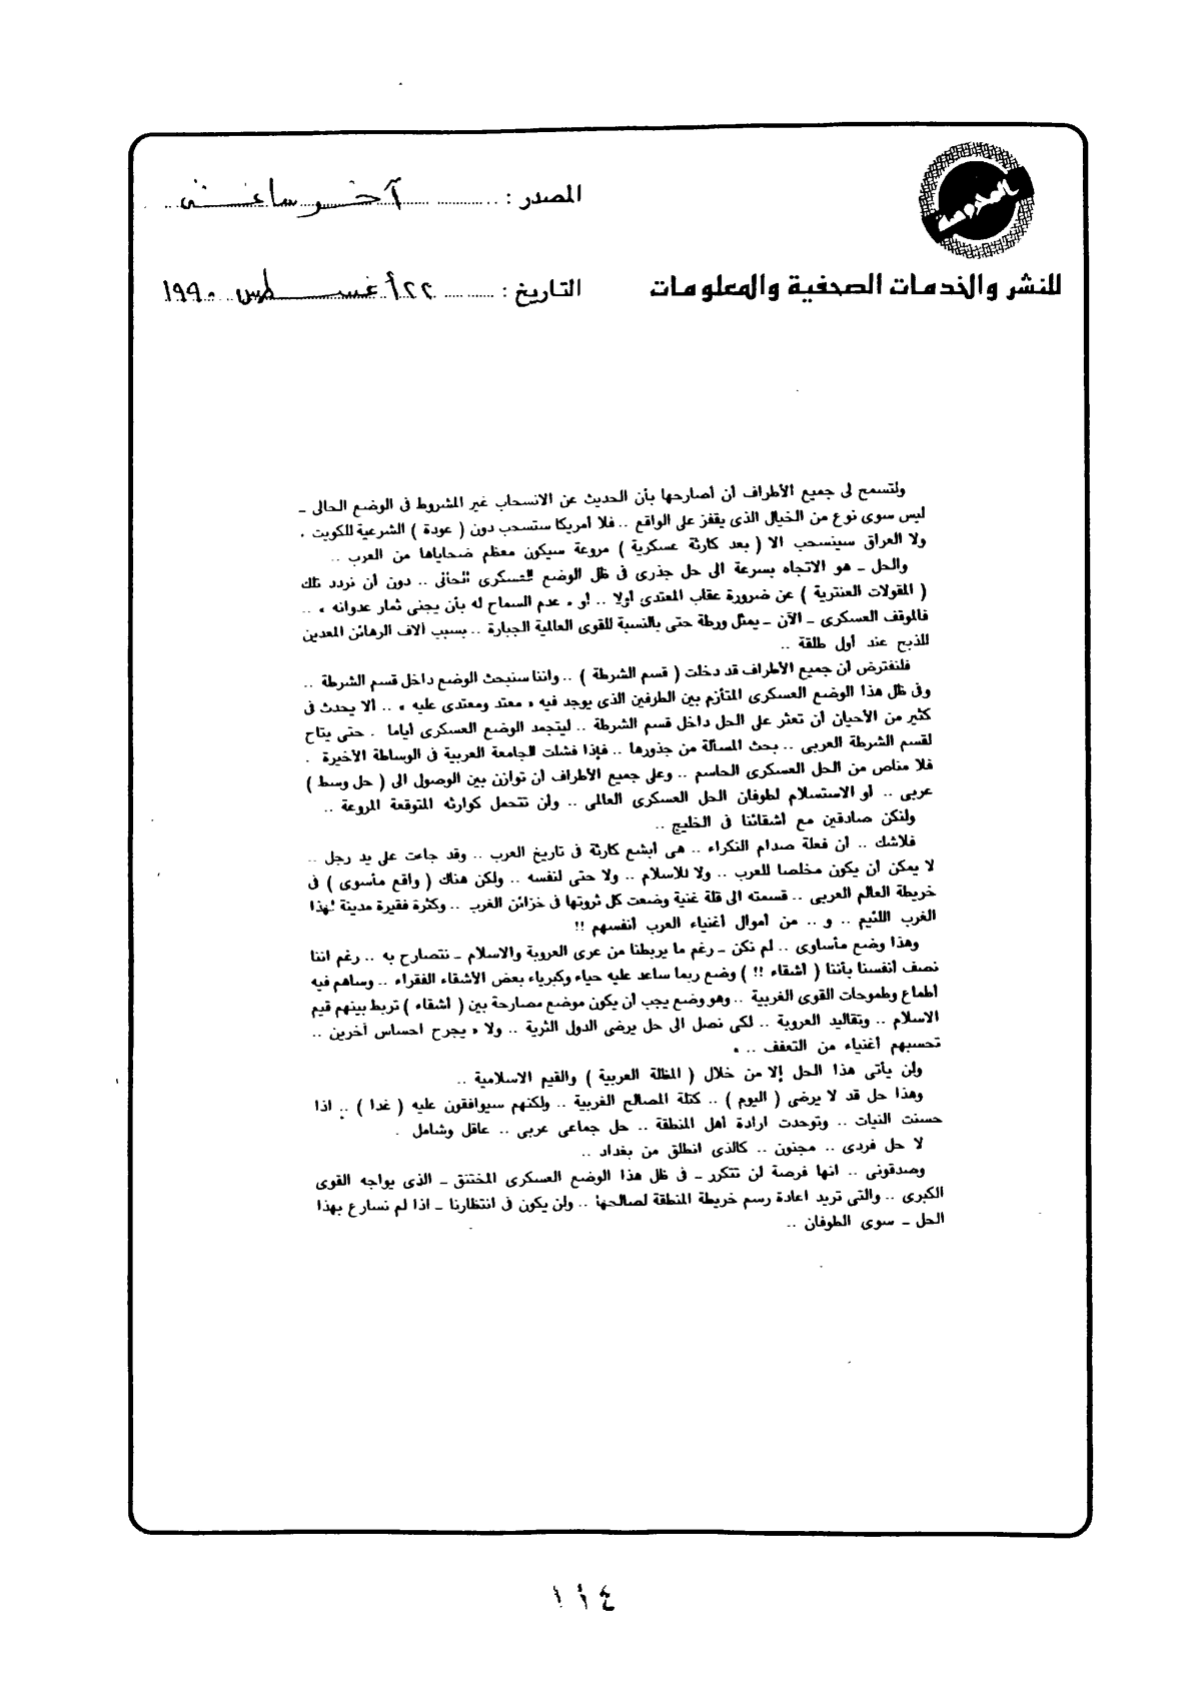 المحروسة
المصدر : آخر ساعة
للنشر والخدمات الصحفية والمعلومات
التاريخ : ٢٢ أغسطس ١٩٩٠
ولتسمح لى جميع الأطراف أن أصارحها بأن الحديث عن الانسحاب غير المشروط فى الوضع الحالى ـ
ليس سوى نوع من الخيال الذى يقفز على الواقع .. فلا أمريكا ستسحب دون ( عودة ) الشرعية للكويت .
ولا العراق سينسحب الا ( بعد كارثة عسكرية ) مروعة سيكون معظم ضحاياها من العرب ..
والحل ـ هو الاتجاه بسرعة الى حل جذرى فى ظل الوضع العسكرى الحالى .. دون أن نردد تلك
( المقولات العنترية ) عن ضرورة عقاب المعتدى أولا .. أو « عدم السماح له بأن يجنى ثمار عدوانه » ..
فالموقف العسكرى ـ الآن ـ يمثل ورطة حتى بالنسبة للقوى العالمية الجبارة .. بسبب آلاف الرهائن المعدين
للذبح عند أول طلقة ..
فلنفترض أن جميع الأطراف قد دخلت ( قسم الشرطة ) .. واننا سنبحث الوضع داخل قسم الشرطة ..
وفى ظل هذا الوضع العسكرى المتأزم بين الطرفين الذى يوجد فيه « معتد ومعتدى عليه » .. ألا يحدث فى
كثير من الأحيان أن تعثر على الحل داخل قسم الشرطة .. ليتجمد الوضع العسكرى أياما . حتى يتاح
لقسم الشرطة العربى .. بحث المسألة من جذورها .. فإذا فشلت الجامعة العربية فى الوساطة الأخيرة .
فلا مناص من الحل العسكرى الحاسم .. وعلى جميع الأطراف أن توازن بين الوصول الى ( حل وسط )
عربى .. أو الاستسلام لطوفان الحل العسكرى العالمى .. ولن نتحمل كوارثه المتوقعة المروعة ..
ولنكن صادقين مع أشقائنا فى الخليج ..
فلاشك .. أن فعلة صدام النكراء .. هى أبشع كارثة فى تاريخ العرب .. وقد جاءت على يد رجل ..
لا يمكن أن يكون مخلصا للعرب .. ولا للاسلام .. ولا حتى لنفسه .. ولكن هناك ( واقع مأسوى ) فى
خريطة العالم العربى .. قسمته الى قلة غنية وضعت كل ثروتها فى خزائن الغرب .. وكثرة فقيرة مدينة لهذا
الغرب اللئيم .. و .. من أموال أغنياء العرب أنفسهم !!
وهذا وضع مأساوى .. لم نكن ـ رغم ما يربطنا من عرى العروبة والاسلام ـ نتصارح به .. رغم اننا
نصف أنفسنا بأننا ( أشقاء !! ) وضع ربما ساعد عليه حياء وكبرياء بعض الأشقاء الفقراء .. وساهم فيه
أطماع وطموحات القوى الغربية .. وهو وضع يجب أن يكون موضع مصارحة بين ( أشقاء ) تربط بينهم قيم
الاسلام .. وتقاليد العروبة .. لكى نصل الى حل يرضى الدول الثرية .. ولا « يجرح احساس آخرين ..
تحسبهم أغنياء من التعفف .. »
ولن يأتى هذا الحل إلا من خلال ( المظلة العربية ) والقيم الاسلامية ..
وهذا حل قد لا يرضى ( اليوم ) .. كتلة المصالح الغربية .. ولكنهم سيوافقون عليه ( غدا ) .. اذا
حسنت النيات .. وتوحدت ارادة أهل المنطقة .. حل جماعى عربى .. عاقل وشامل .
لا حل فردى .. مجنون .. كالذى انطلق من بغداد ..
وصدقونى .. انها فرصة لن تتكرر ـ فى ظل هذا الوضع العسكرى المختنق ـ الذى يواجه القوى
الكبرى .. والتى تريد اعادة رسم خريطة المنطقة لصالحها .. ولن يكون فى انتظارنا ـ اذا لم نسارع بهذا
الحل ـ سوى الطوفان ..
١١٤